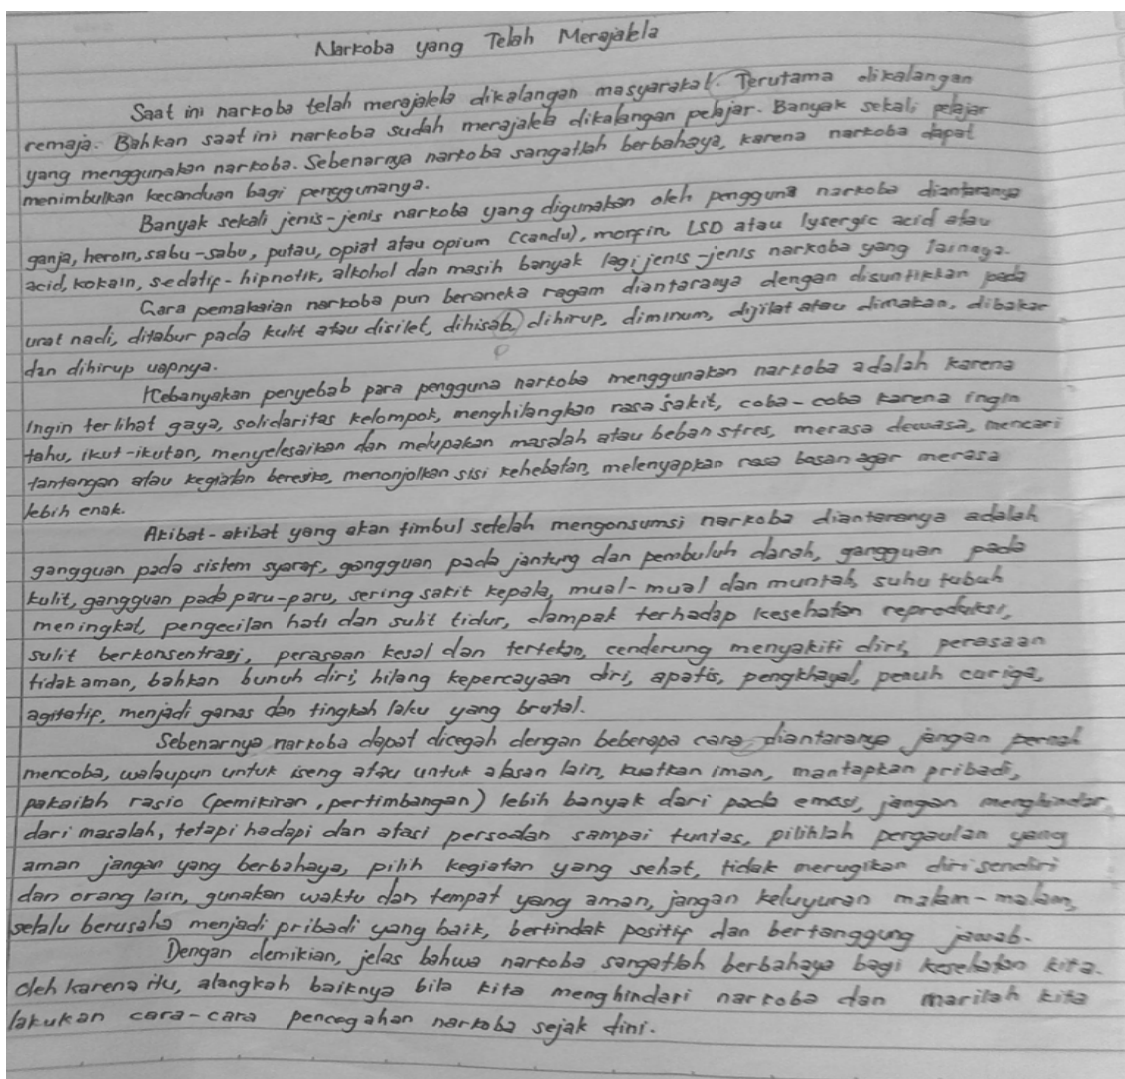 Narkoba yang Telah Merajalela
Saat ini narkoba telah merajalela dikalangan masyarakat. Terutama dikalangan
remaja. Bahkan saat ini narkoba sudah merajalela dikalangan pelajar. Banyak sekali pelajar
yang menggunakan narkoba. Sebenarnya narkoba sangatlah berbahaya, karena narkoba dapat
menimbulkan kecanduan bagi penggunanya.
Banyak sekali jenis-jenis narkoba yang digunakan oleh pengguna narkoba diantaranya
ganja, heroin, sabu-sabu, putau, opiat atau opium (candu), morfin, LSD atau lysergic acid atau
acid, kokain, sedatif-hipnotik, alkohol dan masih banyak lagi jenis-jenis narkoba yang lainnya.
Cara pemakaian narkoba pun beraneka ragam diantaranya dengan disuntikkan pada
urat nadi, ditabur pada kulit atau disilet, dihisab, dihirup, diminum, dijilat atau dimakan, dibakar
dan dihirup uapnya.
Kebanyakan penyebab para pengguna narkoba menggunakan narkoba adalah karena
Ingin terlihat gaya, solidaritas kelompok, menghilangkan rasa sakit, coba-coba karena ingin
tahu, ikut-ikutan, menyelesaikan dan melupakan masalah atau beban stres, merasa dewasa, mencari
tantangan atau kegiatan beresiko, menonjolkan sisi kehebatan, melenyapkan rasa bosan agar merasa
lebih enak.
Akibat-akibat yang akan timbul setelah mengonsumsi narkoba diantaranya adalah
gangguan pada sistem syaraf, gangguan pada jantung dan pembuluh darah, gangguan pada
kulit, gangguan pada paru-paru, sering sakit kepala, mual-mual dan muntah, suhu tubuh
meningkat, pengecilan hati dan sulit tidur, dampak terhadap kesehatan reproduksi,
sulit berkonsentrasi, perasaan kesal dan tertekan, cenderung menyakiti diri, perasaan
tidak aman, bahkan bunuh diri, hilang kepercayaan diri, apatis, pengkhayal, penuh curiga,
agitatif, menjadi ganas dan tingkah laku yang brutal.
Sebenarnya narkoba dapat dicegah dengan beberapa cara diantaranya jangan pernah
mencoba, walaupun untuk iseng atau untuk alasan lain, kuatkan iman, mantapkan pribadi,
pakailah rasio (pemikiran, pertimbangan) lebih banyak dari pada emosi, jangan menghindar
dari masalah, tetapi hadapi dan atasi persoalan sampai tuntas, pilihlah pergaulan yang
aman jangan yang berbahaya, pilih kegiatan yang sehat, tidak merugikan diri sendiri
dan orang lain, gunakan waktu dan tempat yang aman, jangan keluyuran malam-malam,
selalu berusaha menjadi pribadi yang baik, bertindak positif dan bertanggung jawab.
Dengan demikian, jelas bahwa narkoba sangatlah berbahaya bagi kesehatan kita.
Oleh karena itu, alangkah baiknya bila kita menghindari narkoba dan marilah kita
lakukan cara-cara pencegahan narkoba sejak dini.